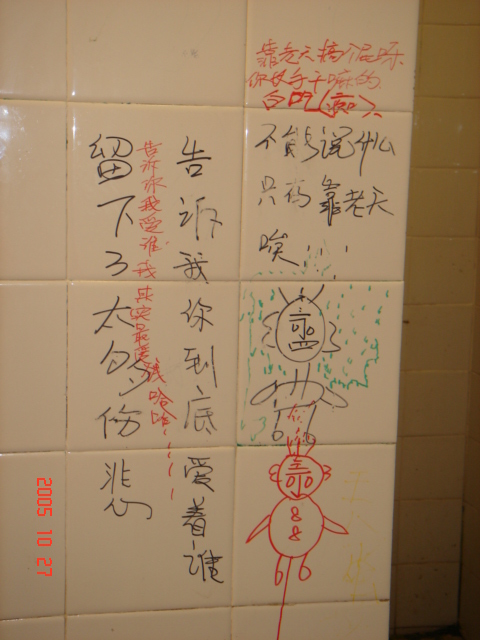 靠老天搞个屁呀.
你双手干嘛的
白吃(痴)、
不能说什么
只有靠老天
唉...
告诉我你到底爱着谁
告诉你我爱谁我其实最爱钱哈哈
留下了太多伤悲
2005 10 27